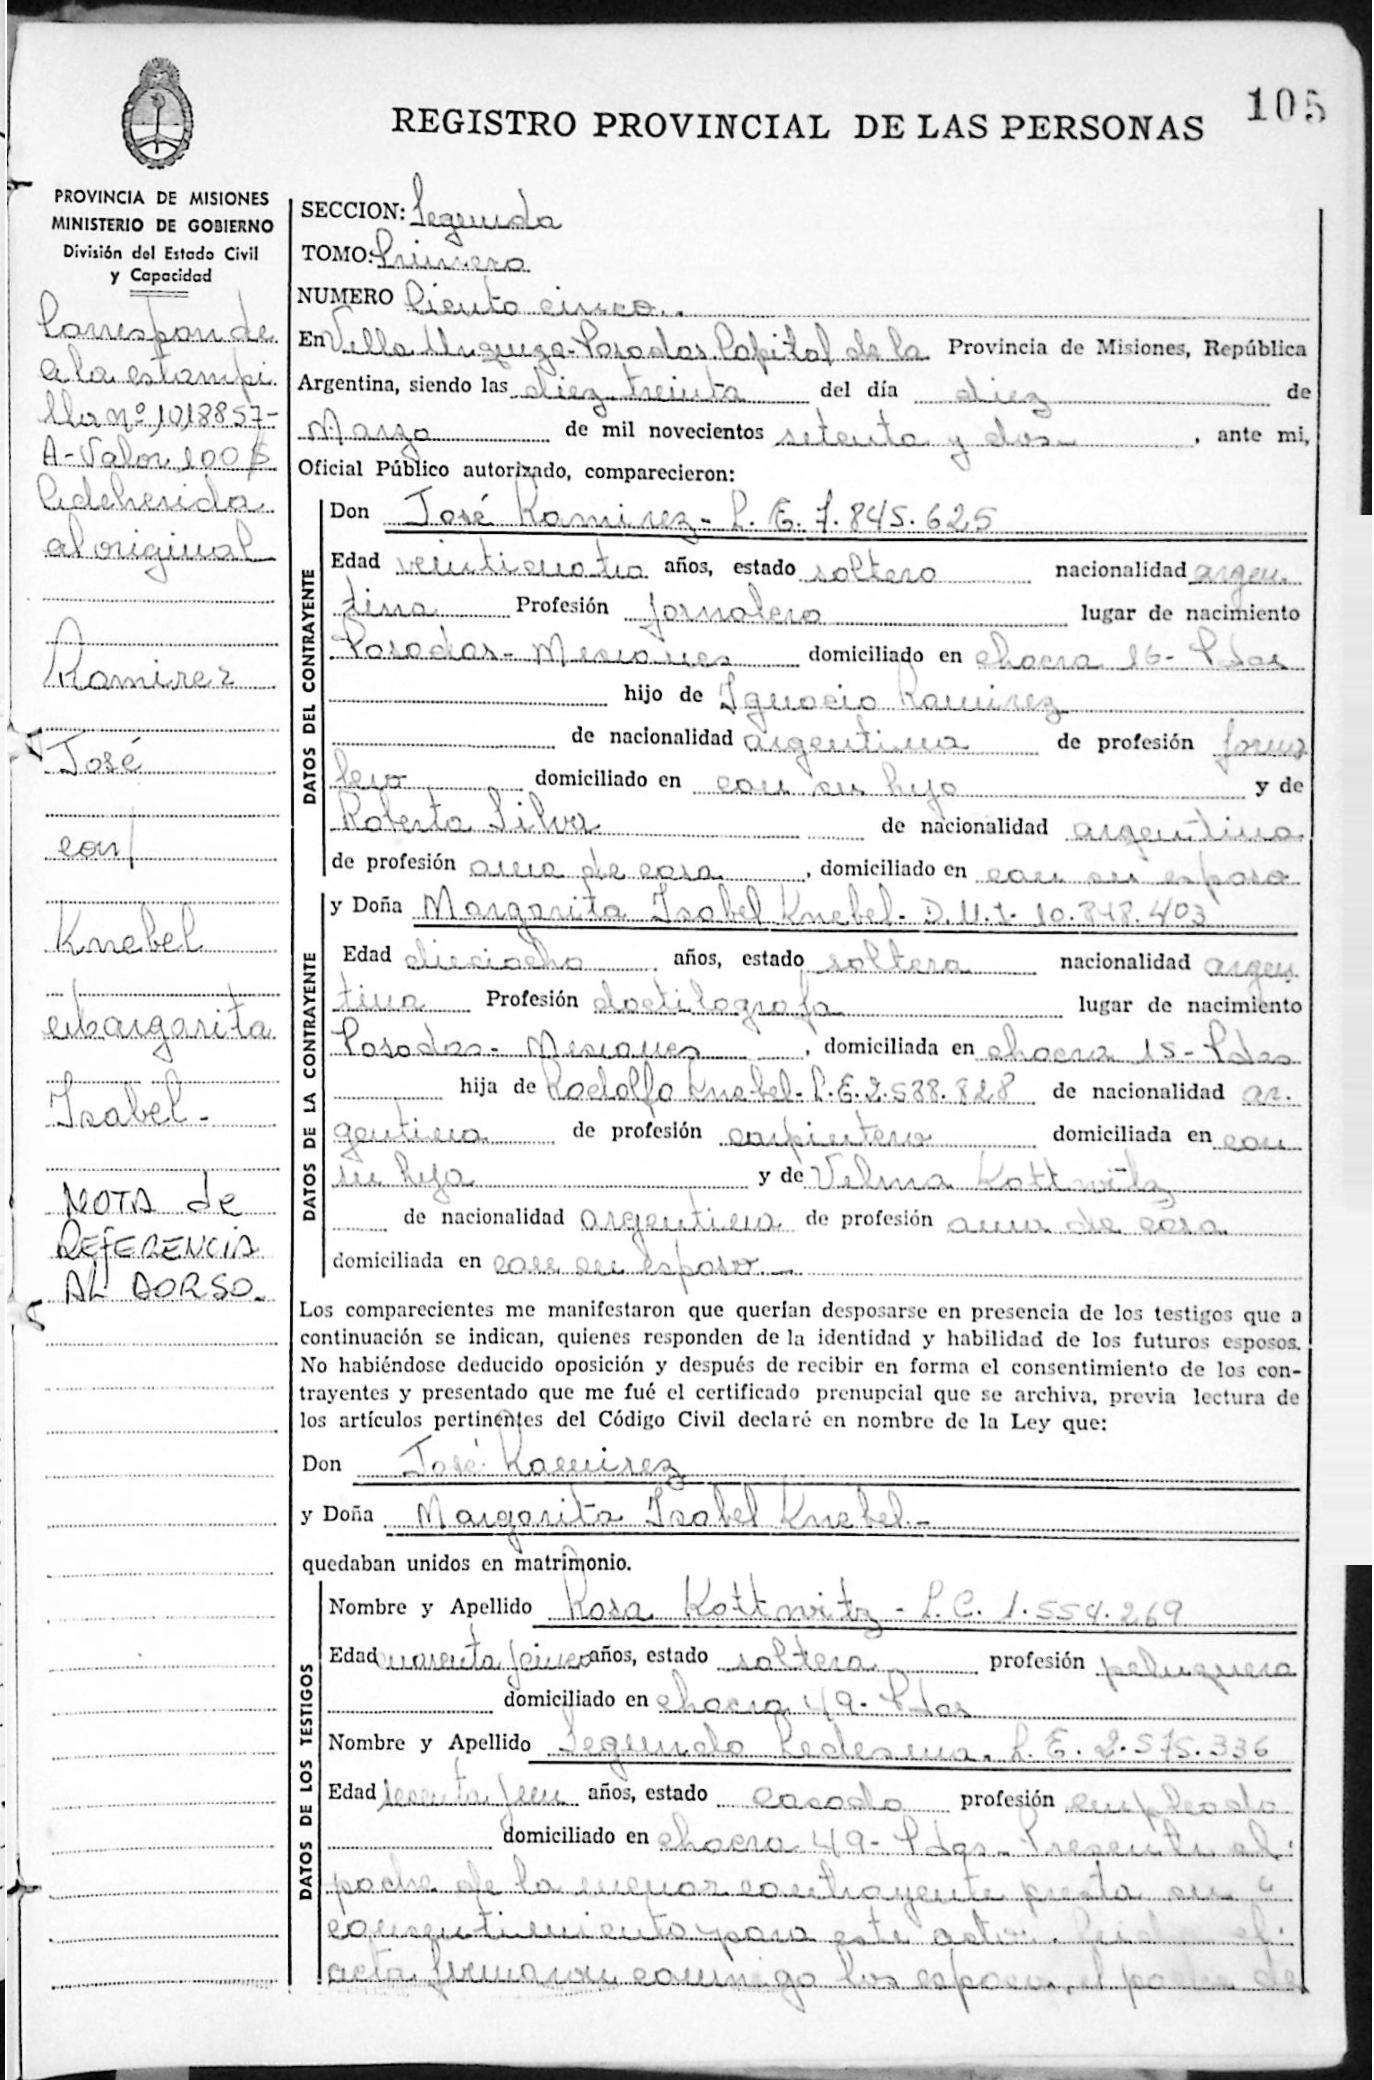 105
REGISTRO PROVINCIAL DE LAS PERSONAS
PROVINCIA DE MISIONES
MINISTERIO DE GOBIERNO
División del Estado Civil
y Capacidad
Corresponde
a la estampi
lla nº 1018857-
A-Valor 100 $
Adeherida
al original
Ramirez
José
con
Knebel
Margarita
Isabel-
NOTA de
REFERENCIA
AL DORSO-
SECCION: Segunda
TOMO: Primero
NUMERO Ciento cinco..
En Villa Urquiza-Posadas Capital de la Provincia de Misiones, República
Argentina, siendo las diez treinta del día diez de
Marzo de mil novecientos setenta y dos- , ante mi,
Oficial Público autorizado, comparecieron:
DATOS DEL CONTRAYENTE
Don José Ramirez- L. E. 7.845.625
Edad veinticuatro años, estado soltero nacionalidad argen
tina Profesión jornalero lugar de nacimiento
Posadas- Misiones domiciliado en chacra 16- Pdas
hijo de Ignacio Ramirez
de nacionalidad argentina de profesión jorna
lero domiciliado en con su hijo y de
Roberta Silva de nacionalidad argentina
de profesión ama de casa , domiciliado en con su esposo
DATOS DE LA CONTRAYENTE
y Doña Margarita Isabel Knebel- D.N.I- 10.848.403
Edad dieciocho años, estado soltera nacionalidad argen
tina Profesión dactilografa lugar de nacimiento
Posadas- Misiones , domiciliada en chacra 15- Pdas
hija de Rodolfo Knebel- L.E.2.538.828 de nacionalidad ar-
gentina de profesión carpintero domiciliada en con
su hija y de Velma Kottwitz
de nacionalidad argentina de profesión ama de casa
domiciliada en con su esposo-
Los comparecientes me manifestaron que querían desposarse en presencia de los testigos que a
continuación se indican, quienes responden de la identidad y habilidad de los futuros esposos.
No habiéndose deducido oposición y después de recibir en forma el consentimiento de los con-
trayentes y presentado que me fué el certificado prenupcial que se archiva, previa lectura de
los artículos pertinentes del Código Civil declaré en nombre de la Ley que:
Don José Ramirez
y Doña Margarita Isabel Knebel-
quedaban unidos en matrimonio.
DATOS DE LOS TESTIGOS
Nombre y Apellido Rosa Kottwitz - L.C. 1.554.269
Edad cuarenta/cinco años, estado soltera profesión peluquera
domiciliado en chacra 49- Pdas
Nombre y Apellido Segundo Ledesma. L. E. 2.575.336
Edad años, estado casado profesión empleado
domiciliado en chacra 49- Pdas- Presente el
padre de la menor contrayente presta su
consentimiento para este acto. Leida el
acta firmaron conmigo los esposos, el padre de